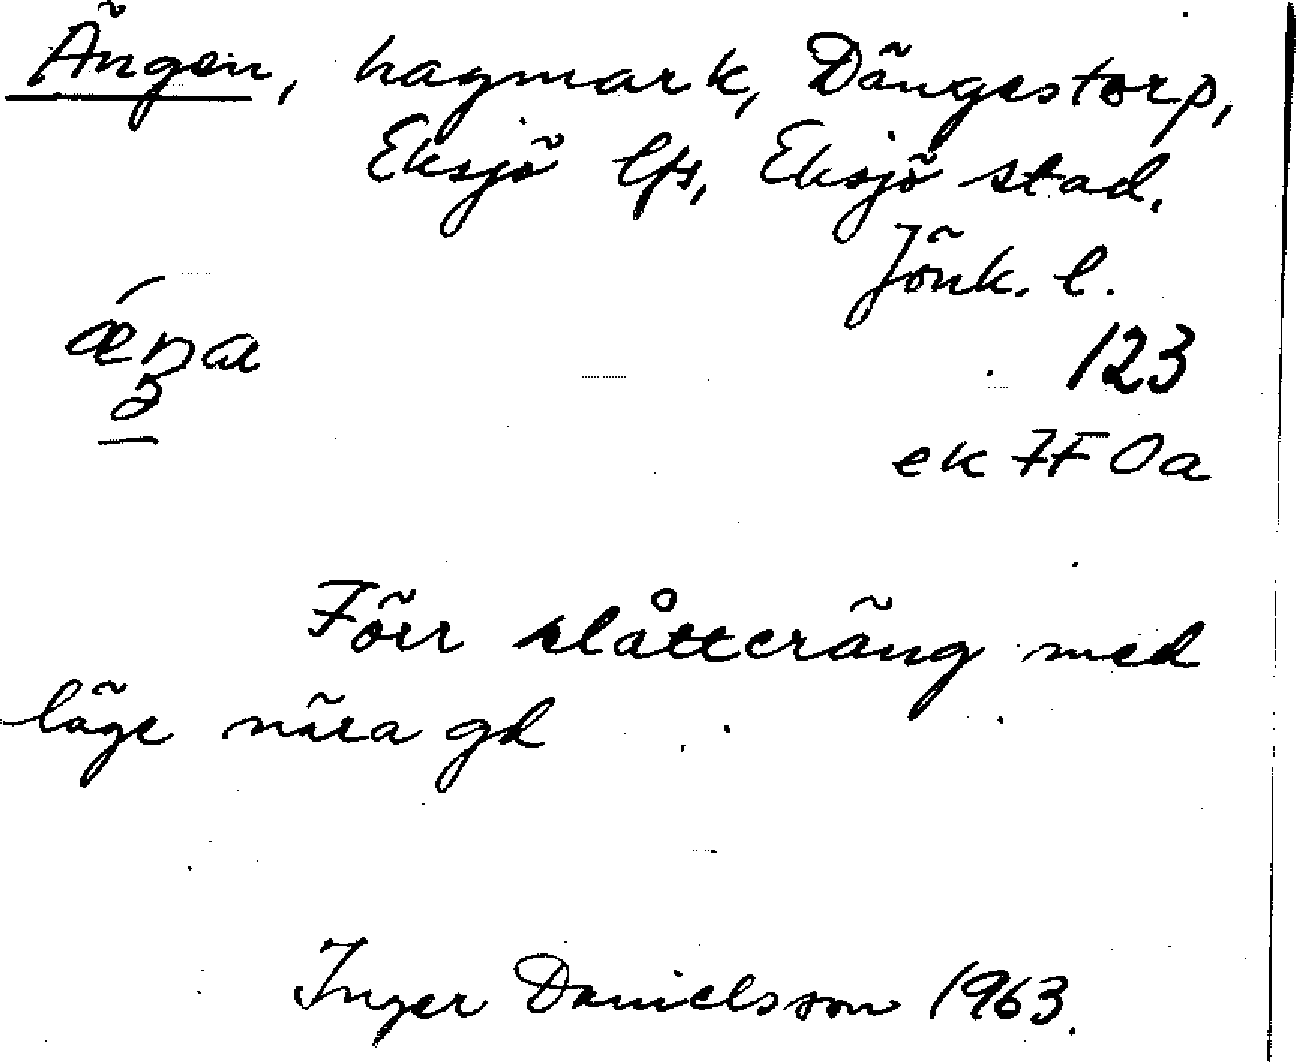 Ängen, hagmark, Dängestorp,
Eksjö lfs, Eksjö stad.
Jönk. l.
123
ek 7F0a
Förr slåtteräng med
läge nära gd
Inger Danielsson 1963.